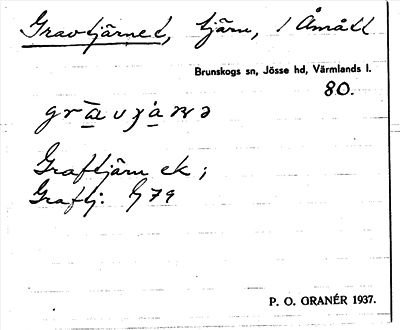 Gravtjärnet, tjärn, / Åmått
Brunskogs sn, Jösse hd, Värmlands l.
80.
Graftjärn ek;
Graftj. G 79
P. O. GRANÉR 1937.